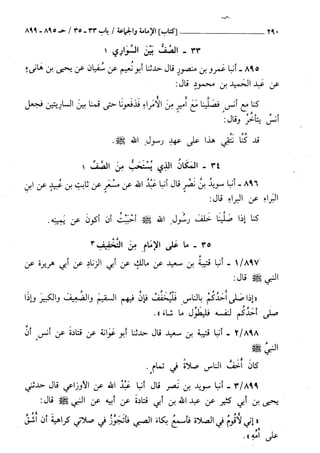 ٢٩٠ [كتاب] الإمامة والجماعة / باب ٣٣ ـ ٣٥ / حـ ٨٩٥ ـ ٨٩٩
٣٣ - الصَّفُّ بَيْنَ السَّوَارِي ١
٨٩٥ - أنبا عمرو بن منصور قال حدثنا أبو نُعيم عن سُفيان عن يحيى بن هانىء
عن عبد الحميد بن محمود قال:
كنا مع أنس فصلَّينا مَعَ أميرٍ مِنَ الأمراءِ فدَفَعونَا حتى قمنا بينَ الساريتينِ فجعل
أنسٌ يتأخّرُ وقال:
قد كُنا نتَّقي هذا على عهدِ رسولِ الله ﷺ.
٣٤ - المَكَانُ الَّذِي يُسْتَحَبُّ مِنَ الصَّفِّ ١
٨٩٦ - أنبا سويدُ بنُ نَصْرٍ قال أنبا عَبْدُ الله عن مِسْعَرٍ عن ثابتِ بن عُبيدٍ عن ابنِ
البَراءِ عن البراءِ قال:
كنا إذا صَلَّينَا خلفَ رسُولِ الله ﷺ أحْبَبْتُ أن أكونَ عن يَمينِه.
٣٥ - ما على الإمَامِ مِنَ التَّخْفِيفِ ٣
١/٨٩٧ - أنبا قتيبةُ بن سعيد عن مالكٍ عن أبي الزنادِ عن أبي هريرة عن
النبي ﷺ قال:
«إذا صَلَّى أحَدُكُمْ بالناسِ فَلْيُخَفِّفْ فإنَّ فيهم السقيمَ والضعيفَ والكبيرَ وإذا
صلى أحدُكم لنفسه فليطوِّلْ ما شاءَ».
٢/٨٩٨ - أنبا قتيبة بن سعيد قال حدثنا أبو عَوانةَ عن قتادةَ عن أنسٍ أنَّ
النبيَّ ﷺ
كانَ أخفَّ الناسِ صلاةً في تمامٍ.
٣/٨٩٩ - أنبا سويد بن نصر قال أنبا عَبْدُ الله عن الأوزاعي قال حدثني
يحيى بن أبي كثير عن عبد الله بن أبي قتادةَ عن أبيه عن النبي ﷺ قال:
«إنّي لأقومُ في الصلاةِ فأسمعُ بكاءَ الصبي فأتجوَّزُ في صلاتي كراهيةَ أن أشُقَّ
على أُمِّهِ».